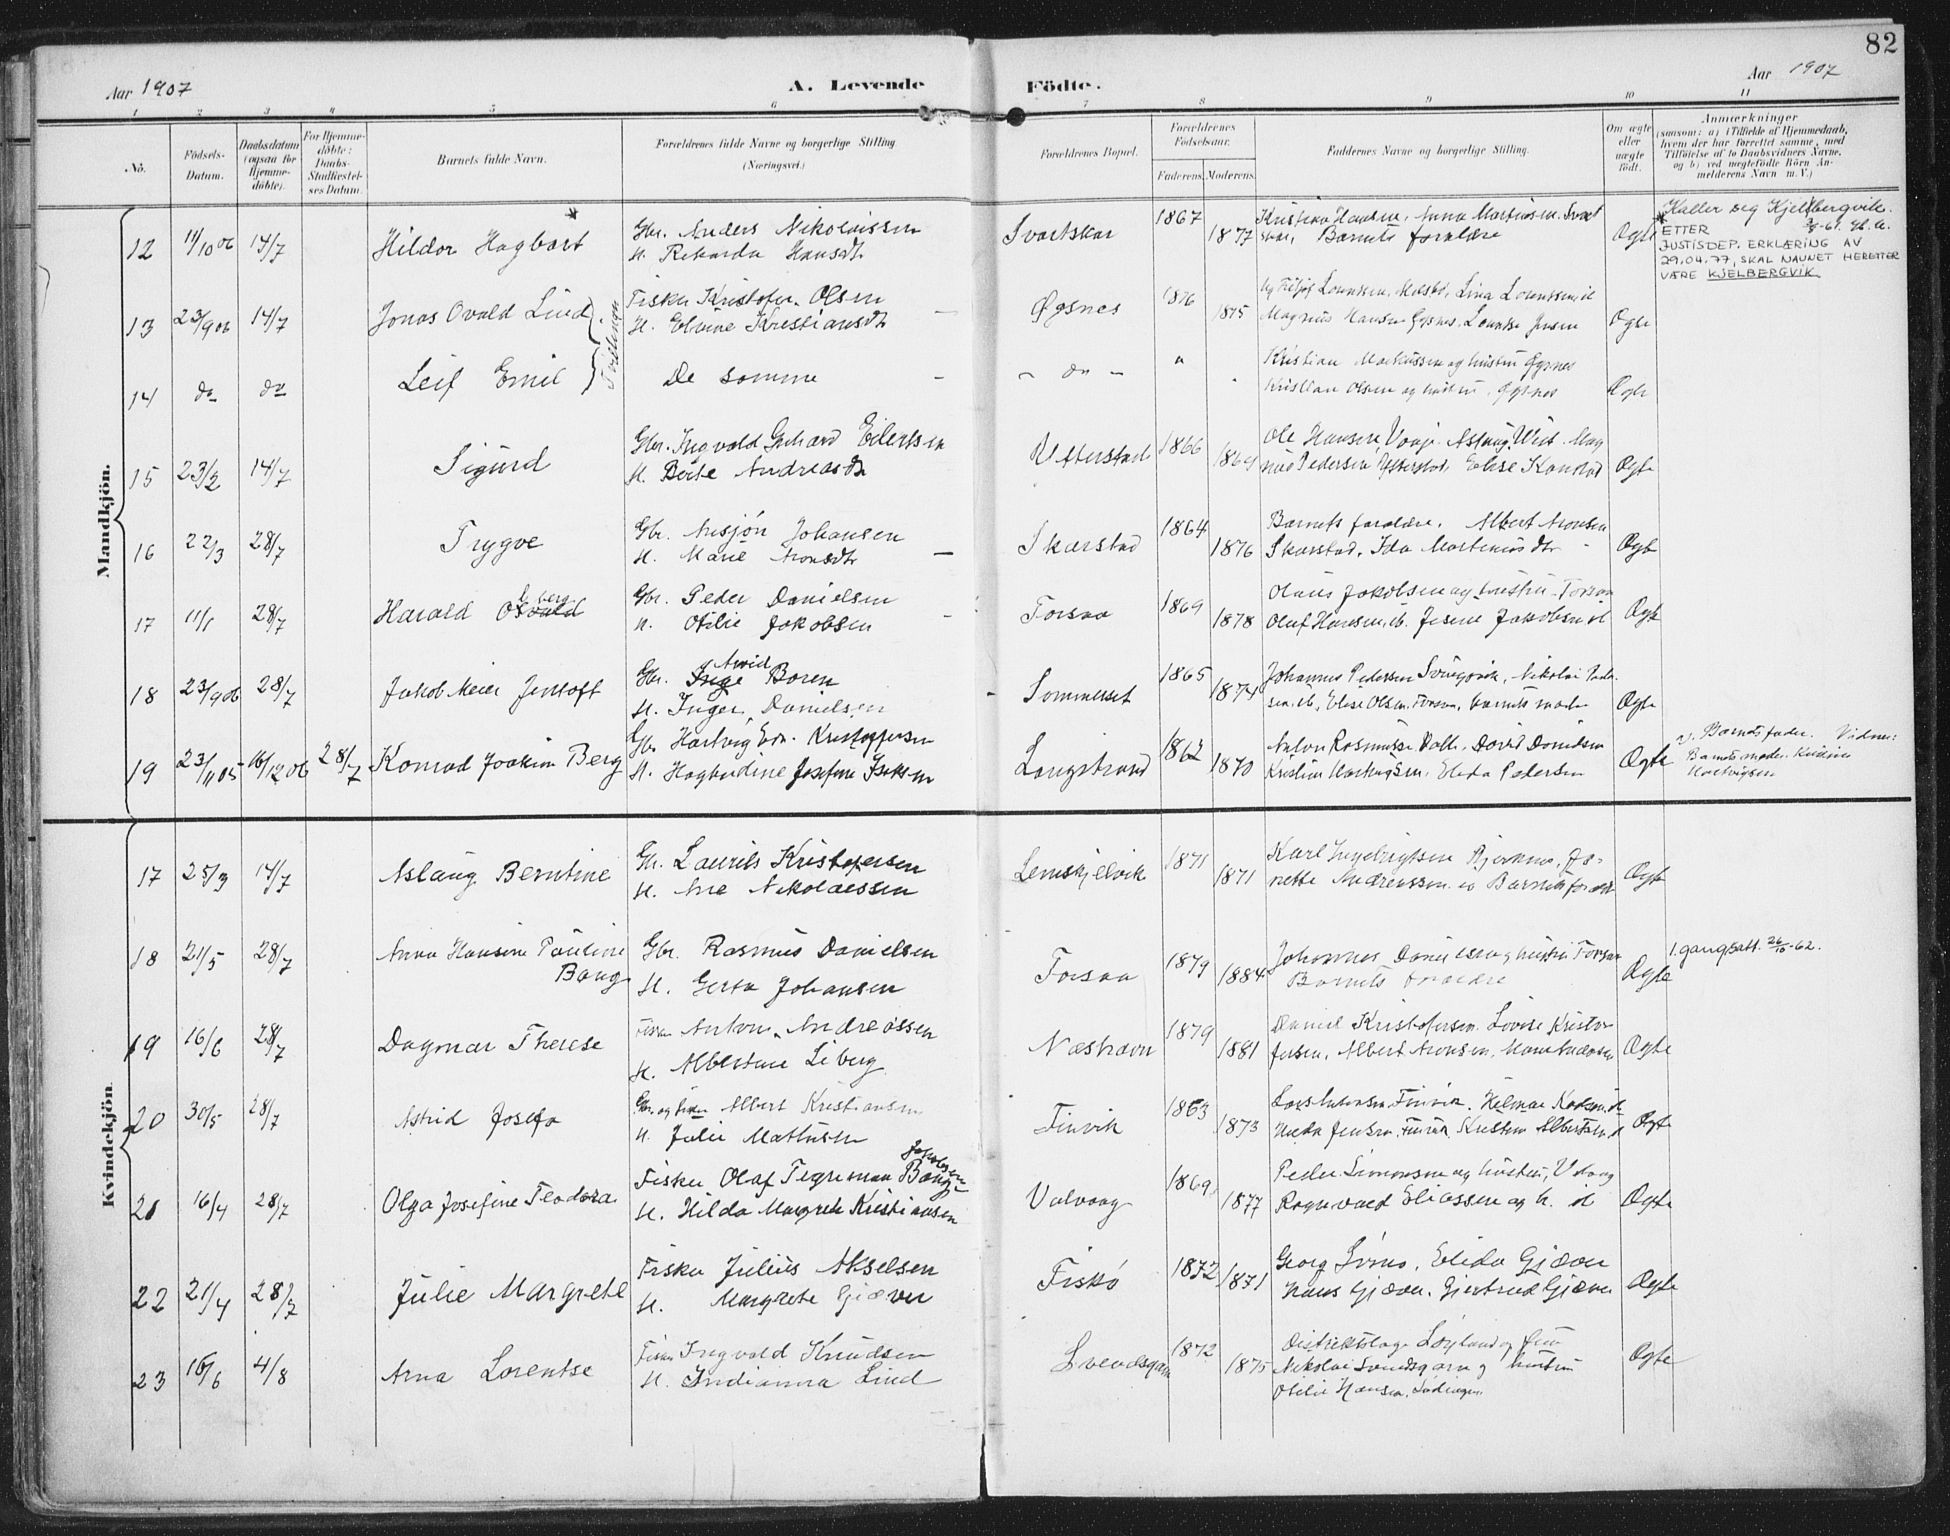 82
Aar 1907
A. Levende
Födte.
Aar 1907
1 2 3 4 5 6 7 8 9 10 11
No.
Födsels-
Datum.
Daabsdatum
(ogsaa for
Hjemme-
döbte).
For Hjemme-
döbte:
Daabs-
Stadfæstel-
ses Datum.
Barnets fulde Navn.
Forældrenes fulde Navne og borgerlige Stilling
(Næringsvei.)
Forældrenes Bopæl.
Forældrenes
Födselsaar.
Faderens. Moderens.
Faddernes Navne og borgerlige Stilling.
Om ægte
eller
uægte
födt.
Anmerkninger
(saasom: a) i Tilfælde af Hjemmedaab,
hvem der har forrettet samme, med
Tilföielse af to Daabsvidners Navne,
og b) ved uegtefödte Börn An-
melderens Navn m. V.)
Mandkjön.
12 11/10 06 14/7 Hildor Hagbart
Gbr. Anders Nikolaissen
H. Rikarda Hansdtr
Svartskar 1867 1877
Kristian Hansen, Anna Martinsen. Svart
skar, Barnets forældre
Ægte
Kaller seg Kjelbergvik.
ETTER
JUSTISDEP. ERKLÆRING AV
29.04.77, SKAL NAVNET HERETTER
VÆRE KJELBERGVIK
13 23/9 06 14/7 Jonas Ovald Lind
Tvillinger
Fisker Kristofer Olsen
H. Elvine Kristiansdtr
Øgsnes 1876 1875
Magnus Hansen Øgsnes, Lorentse Jensen
Ægte
14 do do Leif Emil
De samme
- do - "
Kristian Markussen og hustru Øgsnes
Kristian Olsen og hustru, Øgsnes
Ægte
15 23/2 14/7 Sigurd
Gbr. Ingvald Gerhard Eilertsen
H. Berte Andreasdtr
Ytterstad 1866 1869
Ole Hansen Vaage, Aslaug Wist. Mag
nus Pedersen Ytterstad, Elise Kanstad
Ægte
16 22/3 28/7 Trygve
Gbr. Nisjön Johansen
H. Marie Aronsdtr
Skarstad 1864 1876
Barnets forældre. Albert Aronsen
Skarstad, Ida Martinusdtr
Ægte
17 11/1 28/7 Harald Osvald
berg
Gbr. Peder Danielsen
H. Otilie Jakobsen
Forsaa 1869 1878
Olaus Jakobsen og hustru Forsaa
Olaf Hansen ib. Jesine Jakobsen ib
Ægte
18 23/9 06 28/7 Jakob Meier Jentoft
Gbr. Inge Boren
Arvid
H. Inger Danielsen
Sommerset 1865 1874
Johannes Pedersen Svingvik, Nikolai Peder-
sen ib, Elise Olsen Forsaa, barnets moder
Ægte
19 23/11 05 16/12 06 28/7 Konrad Joakim Berg
Gbr. Hartvig Edv. Kristoffersen
H. Hagbardine Josefine Isaksen
Langstrand 1862 1870
Anton Rasmussen Dalh. David Davidsen
Kristine Hartvigsen, Elida Pedersen
Ægte
Barnets fader. Vidner:
Barnets moder. Kristine
Hartvigsen
Kvindekjön.
17 25/3 14/7 Aslaug Berntine
Gbr. Laurits Kristofersen
H. Ane Nikolaessen
Lemskjelvik 1871 1871
Karl Ingebrigtsen Bjerknes, Ja-
nette Andreassen ib Barnets forældre
Ægte
18 21/5 28/7 Anna Hansine Pauline
Bang
Gbr. Rasmus Danielsen
H. Gerta Johansen
Forsaa 1879 1884
Johannes Danielsen og hustru Forsaa
Barnets forældre
Ægte
1. gangsatt. 26/10-62.
19 16/6 28/7 Dagmar Therese
Fisker Anton Andreassen
H. Albertine Liberg
Næshavn 1879 1881
Daniel Kristofersen. Lovise Kristof-
fersen, Albert Aronsen, Marie Andersen
Ægte
20 30/5 28/7 Astrid Josefa
Gbr. og fisker Albert Kristiansen
H. Julie Mathisen
Finvik 1863 1873
Lars Antonsen Finvik. Hilmar Karlsen ib
Hilda Jensen, Finvik, Kristine Albertsen ib
Ægte
21 16/4 28/7 Olga Josefine Teodora
Fisker Olaf Tegneman Bang-
Jakobsen
H. Hilda Margrete Kristiansen
Valvaag 1869 1877
Peder Simonsen og hustru, Valvaag
Ragnvald Eliassen og h. ib
Ægte
22 21/4 28/7 Julie Margrete
Fisker Julius Akselsen
H. Margrete Gjæver
Fiskö 1872 1871
Georg Svins, Elida Gjæver
Hans Gjæver, Gjertrud Gjæver
Ægte
23 16/6 4/8 Arna Lorentse
Fisker Ingvald Knudsen
H. Indianna Lind
Svendsgam 1872 1875
Distriktslæge Løgland og frue
Nikolai Svendsgam og hustru
Otilie Hansen, Lødingen
Ægte